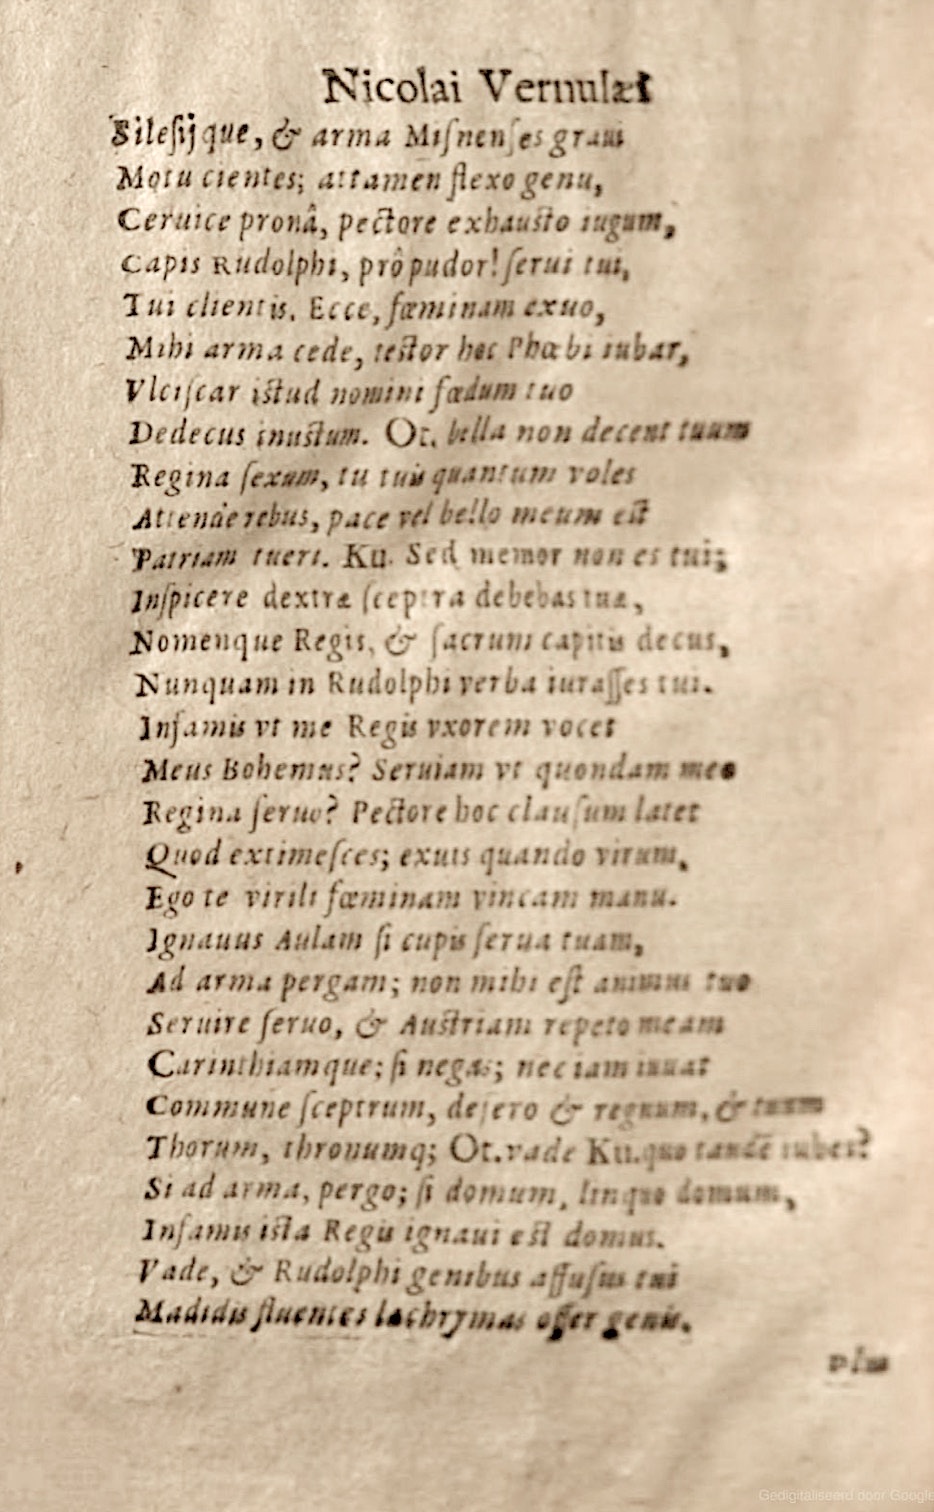 Nicolai Vernulæi
Silesijque, & arma Misnenses graui
Motu cientes; attamen flexo genu,
Ceruice pronâ, pectore exhausto iugum,
Capis Rudolphi, prô pudor! serui tui,
Tui clientis. Ecce, fœminam exuo,
Mihi arma cede, testor hoc Phœbi iubar,
Vlciscar istud nomini fœdum tuo
Dedecus inustum. Ot. bella non decent tuum
Regina sexum, tu tuis quantum voles
Attende rebus, pace vel bello meum est
Patriam tueri. Ku. Sed memor non es tui;
Inspicere dextræ sceptra debebas tuæ,
Nomenque Regis, & sacrum capitis decus,
Nunquam in Rudolphi verba iurasses tui.
Infamis vt me Regis vxorem vocet
Meus Bohemus? Seruiam vt quondam meo
Regina seruo? Pectore hoc clausum latet
Quod extimesces; exuis quando virum,
Ego te virili fœminam vincam manu.
Ignauus Aulam si cupis serua tuam,
Ad arma pergam; non mihi est animus tuo
Seruire seruo, & Austriam repeto meam
Carinthiamque; si negas; nec iam iuuat
Commune sceptrum, desero & regnum, & tuum
Thorum, thronumq; Ot. vade Ku. quo tandē iubes?
Si ad arma, pergo; si domum, linquo domum,
Infamis ista Regis ignaui est domus.
Vade, & Rudolphi genibus affusus tui
Madidis fluentes lachrymas offer genis.
Gedigitaliseerd door Google